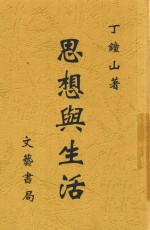 丁鐘山著
思想與生活
文藝書局